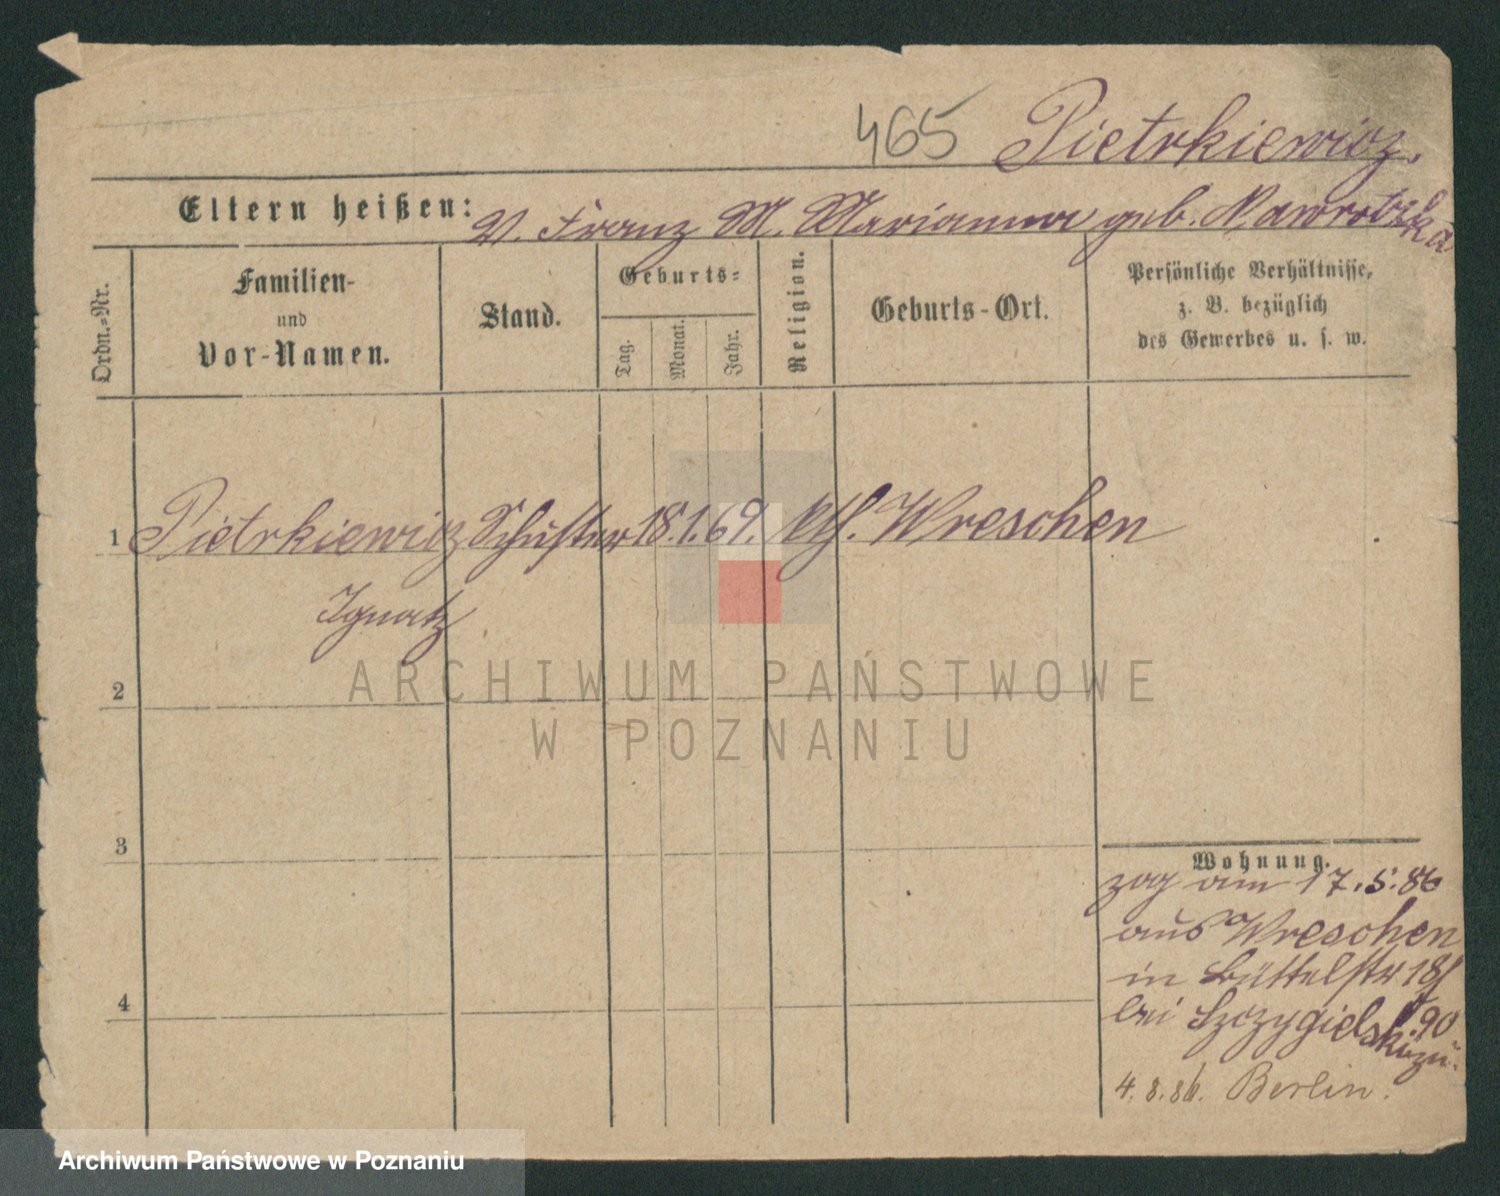 465 Pietrkiewicz.
Eltern heißen: V. Franz M. Marianna geb. Nawrotzka
Ordn.-Nr.
Familien-
und
Vor-Namen.
Stand.
Geburts-
Tag.
Monat.
Jahr.
Religion.
Geburts-Ort.
Persönliche Verhältnisse,
z. B. bezüglich
des Gewerbes u. s. w.
1 Pietrkiewicz Schuster 18.1.69. kth. Wreschen
Ignatz
2
ARCHIWUM PAŃSTWOWE
W POZNANIU
3
Wohnung.
zog am 17.5.86
aus Wreschen
in Büttelstr 18
bei Szczygielski
4
4.8.86. Berlin.
Archiwum Państwowe w Poznaniu